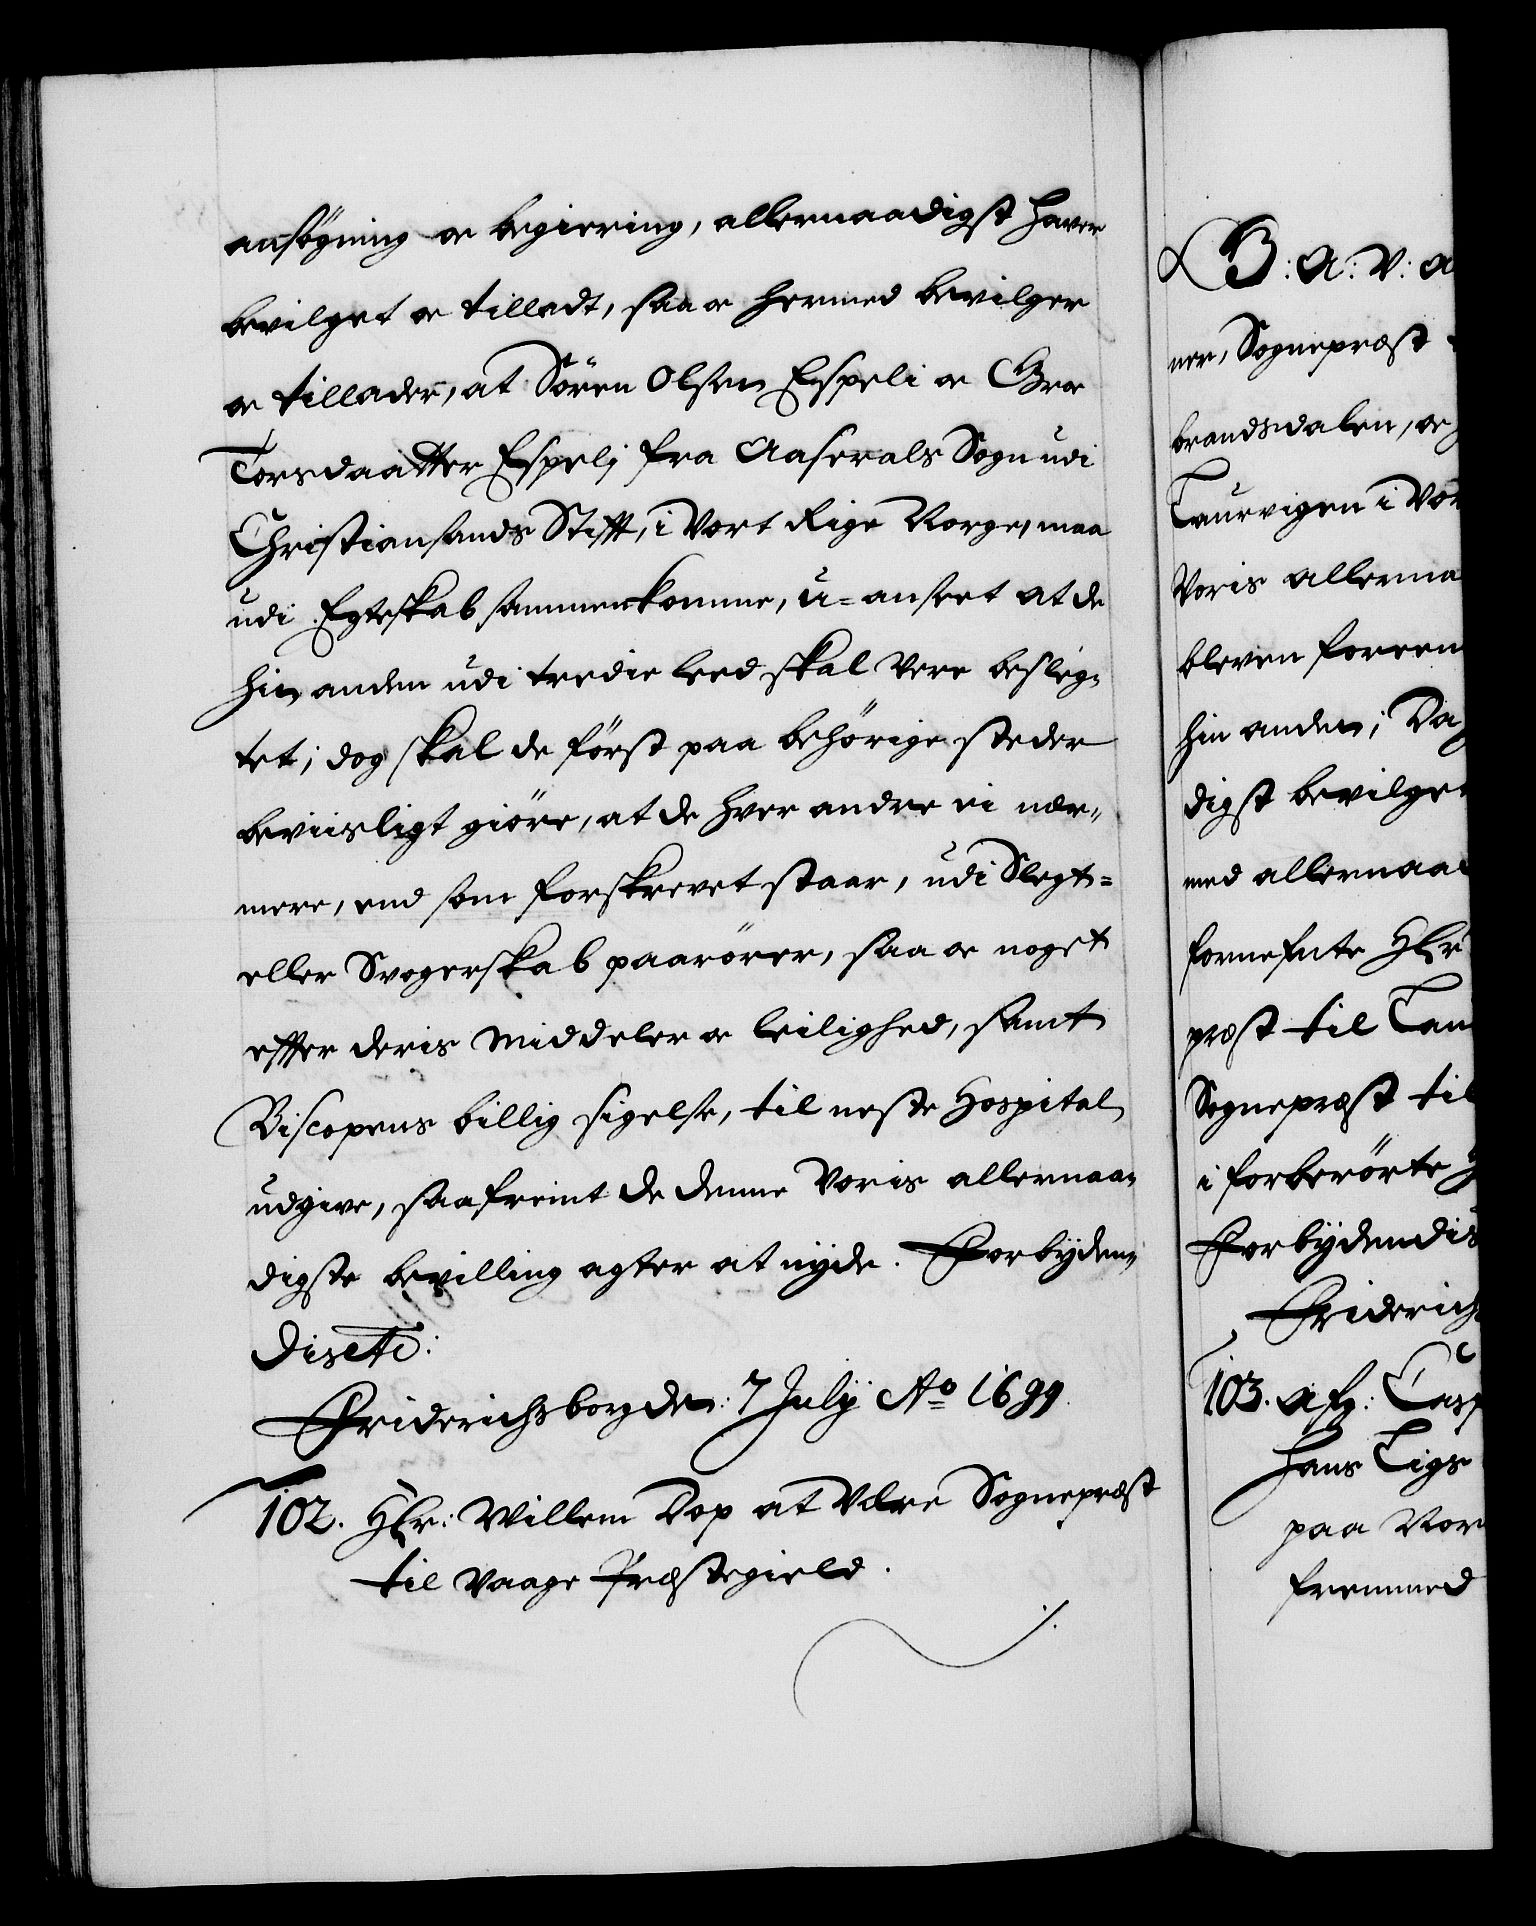 ansøgning oc begiering, allernaadigst haver
bevilget oc tilladt, saa oc hermed bevilger
oc tillader, at Søren Olsen Espeli oc Groe
Torsdaatter Espelj fra Aaserals Sogn udi
Christiansands Stifft, i Vort Rige Norge, maa
udi Egteskab sammenkomme, u-anseet at de
hin anden udi tredie leed skal vere besleg-
tet; dog skal de först paa behörige steder
beviisligt giöre, at de hver andre ei nær-
mere, end som forskrevet staar, udi Slegt-
eller Svogerskab paarörer, saa oc noget
effter deris Middeler oc leilighed, samt
Biscopens billig sigelse, til neste Hospital
udgive, saafremt de denne Voris allernaa-
digste bevilling agter at nyde. Forbyden-
dis etc:
Friderichsborg den: 7 Julij Ao 1699.
102. Hr: Willem Dop at Være Sognepræst
til Vaage Præstegield.
B: A: V: a
ner, Sognepræst
brandsdalen, oc
Laurvigen i Vor
Voris allerna
bleven foreen
hin anden; Da
digst bevilget
med allernaa
fornefnte Hr
præst til Lau
Sognepræst til
i forberörte
Forbydendis
Friderich
103. Afg: Casp
Hans Tigs
paa Nor
fremmed